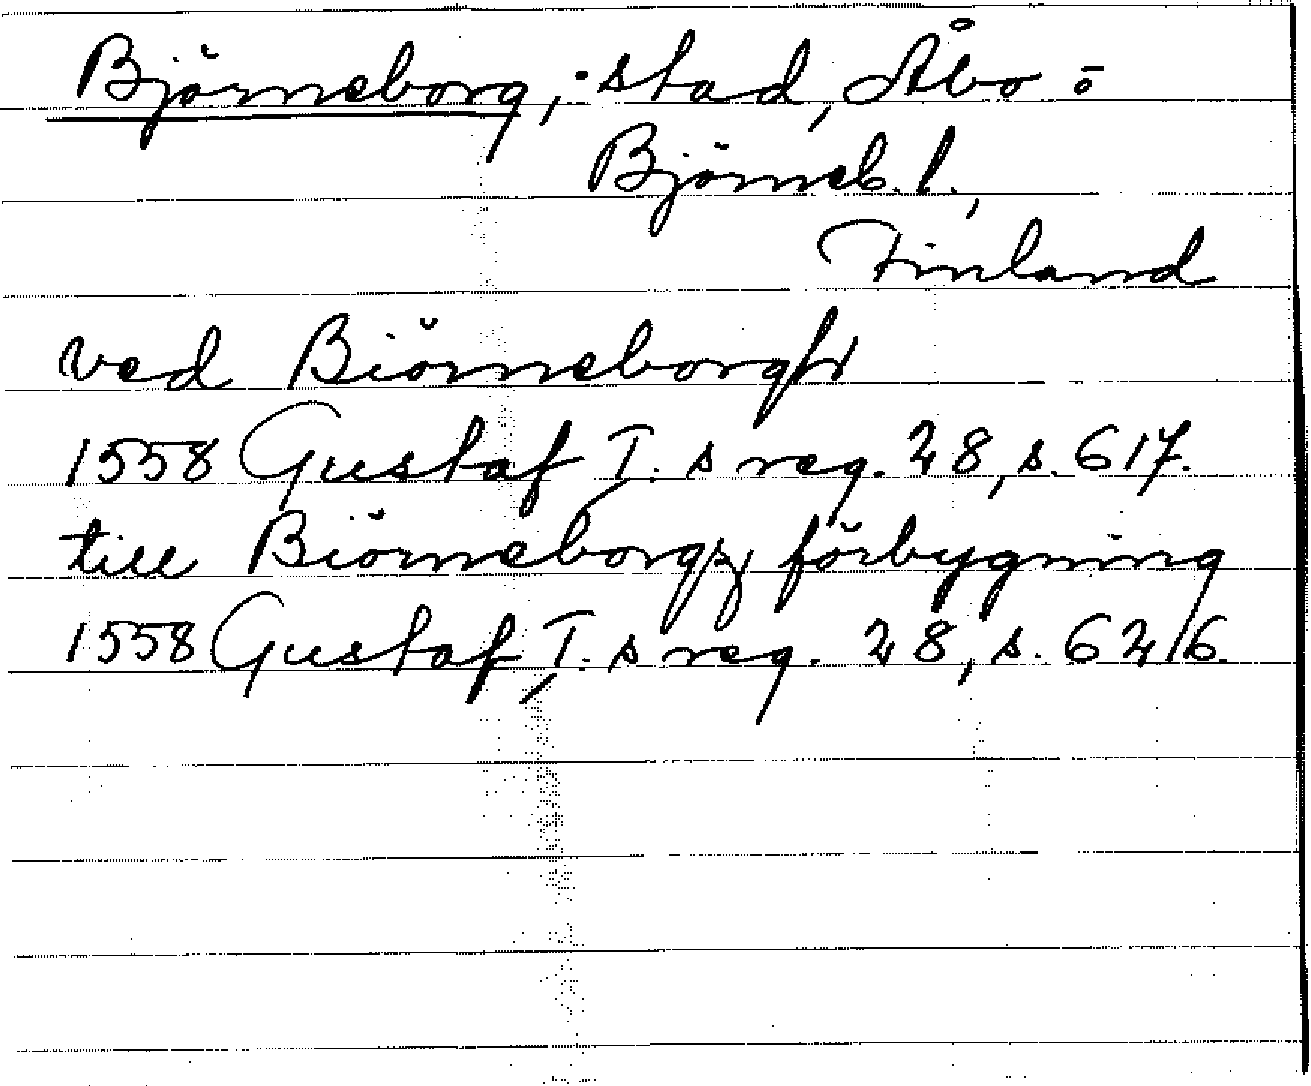 Björneborg, stad, Åbo o
Björneb. l.,
Finland
ved Biörneborgh
1558 Gustaf I. s reg. 28, s. 617.
till Biörneborgz förbygning
1558 Gustaf I. s reg. 28, s. 626.